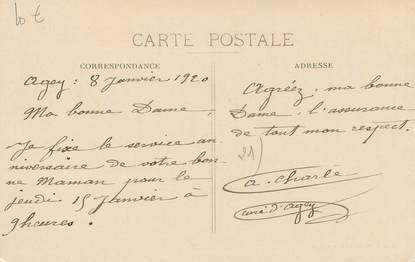 10 €
CARTE POSTALE
CORRESPONDANCE
Agey : 8 Janvier 1920
Ma bonne Dame,
Je fixe le service an-
niversaire de votre bon-
ne Maman pour le
jeudi 15 Janvier à
9 heures.
ADRESSE
Agréez, ma bonne
Dame, l'assurance
de tout mon respect.
21)
a. Charle
curé d'Agey